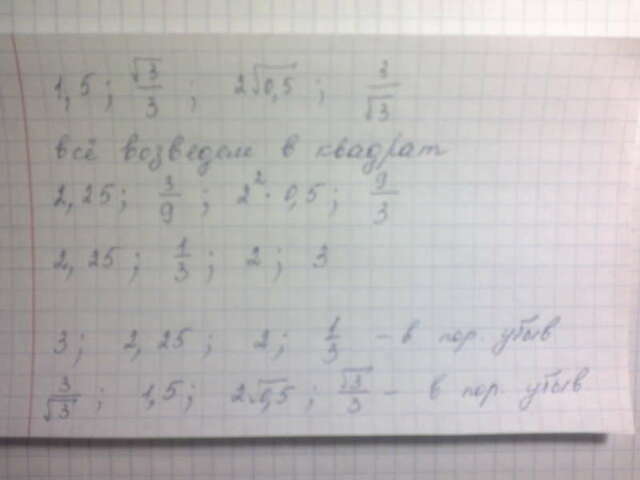 1,5; √3/3; 2√0,5; 3/√3
всё возведем в квадрат
2,25; 3/9; 2²·0,5; 9/3
2,25; 1/3; 2; 3
3; 2,25; 2; 1/3 – в пор. убыв
3/√3; 1,5; 2√0,5; √3/3 – в пор. убыв